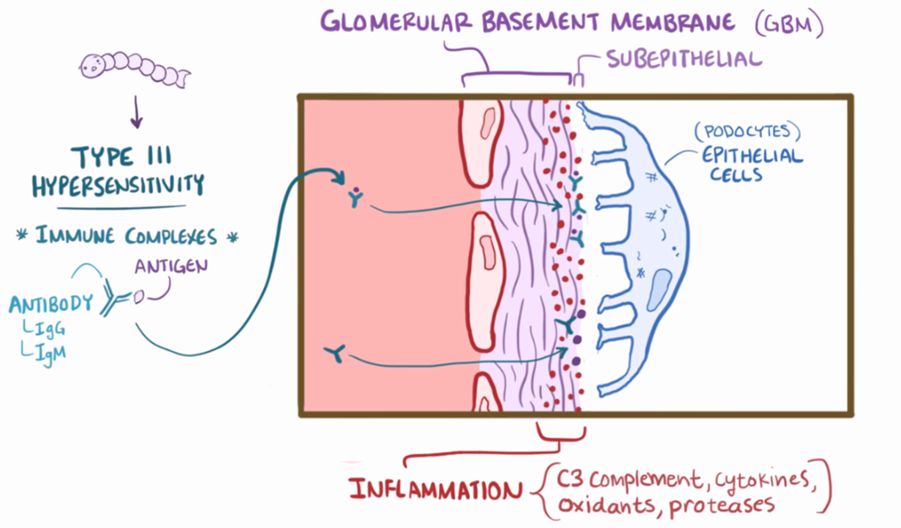 GLOMERULAR BASEMENT MEMBRANE (GBM)
SUBEPITHELIAL
TYPE III
HYPERSENSITIVITY
* IMMUNE COMPLEXES *
ANTIGEN
ANTIBODY
IgG
IgM
(PODOCYTES)
EPITHELIAL
CELLS
INFLAMMATION
(C3 COMPLEMENT, CYTOKINES,
OXIDANTS, PROTEASES)